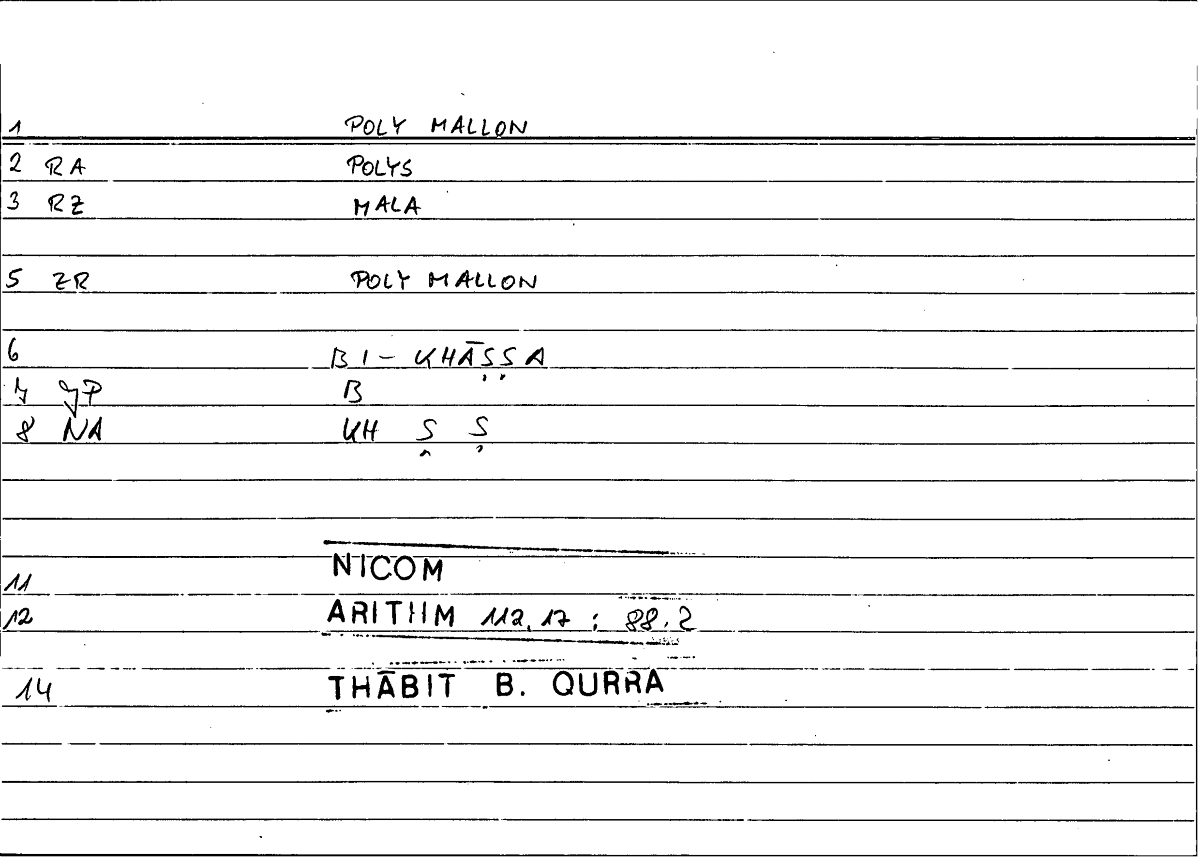 1 POLY MALLON
2 RA POLYS
3 RZ MALA
5 ZR POLY MALLON
6 BI-KHĀṢṢA
7 JP B
8 NA KH Ṣ Ṣ
11 NICOM
12 ARITHM 112.17 : 88.2
14 THĀBIT B. QURRA